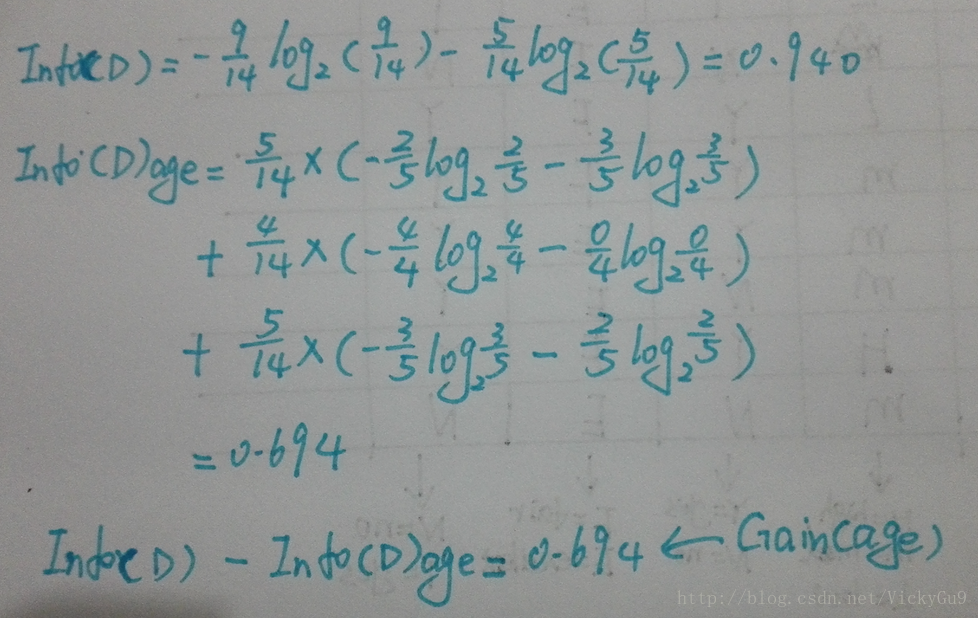 Info(D) = - 9/14 log₂ (9/14) - 5/14 log₂ (5/14) = 0.940
Info(D)age = 5/14 × (- 2/5 log₂ 2/5 - 3/5 log₂ 3/5)
+ 4/14 × (- 4/4 log₂ 4/4 - 0/4 log₂ 0/4)
+ 5/14 × (- 3/5 log₂ 3/5 - 2/5 log₂ 2/5)
= 0.694
Info(D) - Info(D)age = 0.694 ← Gain(age)
http://blog.csdn.net/VickyGu9